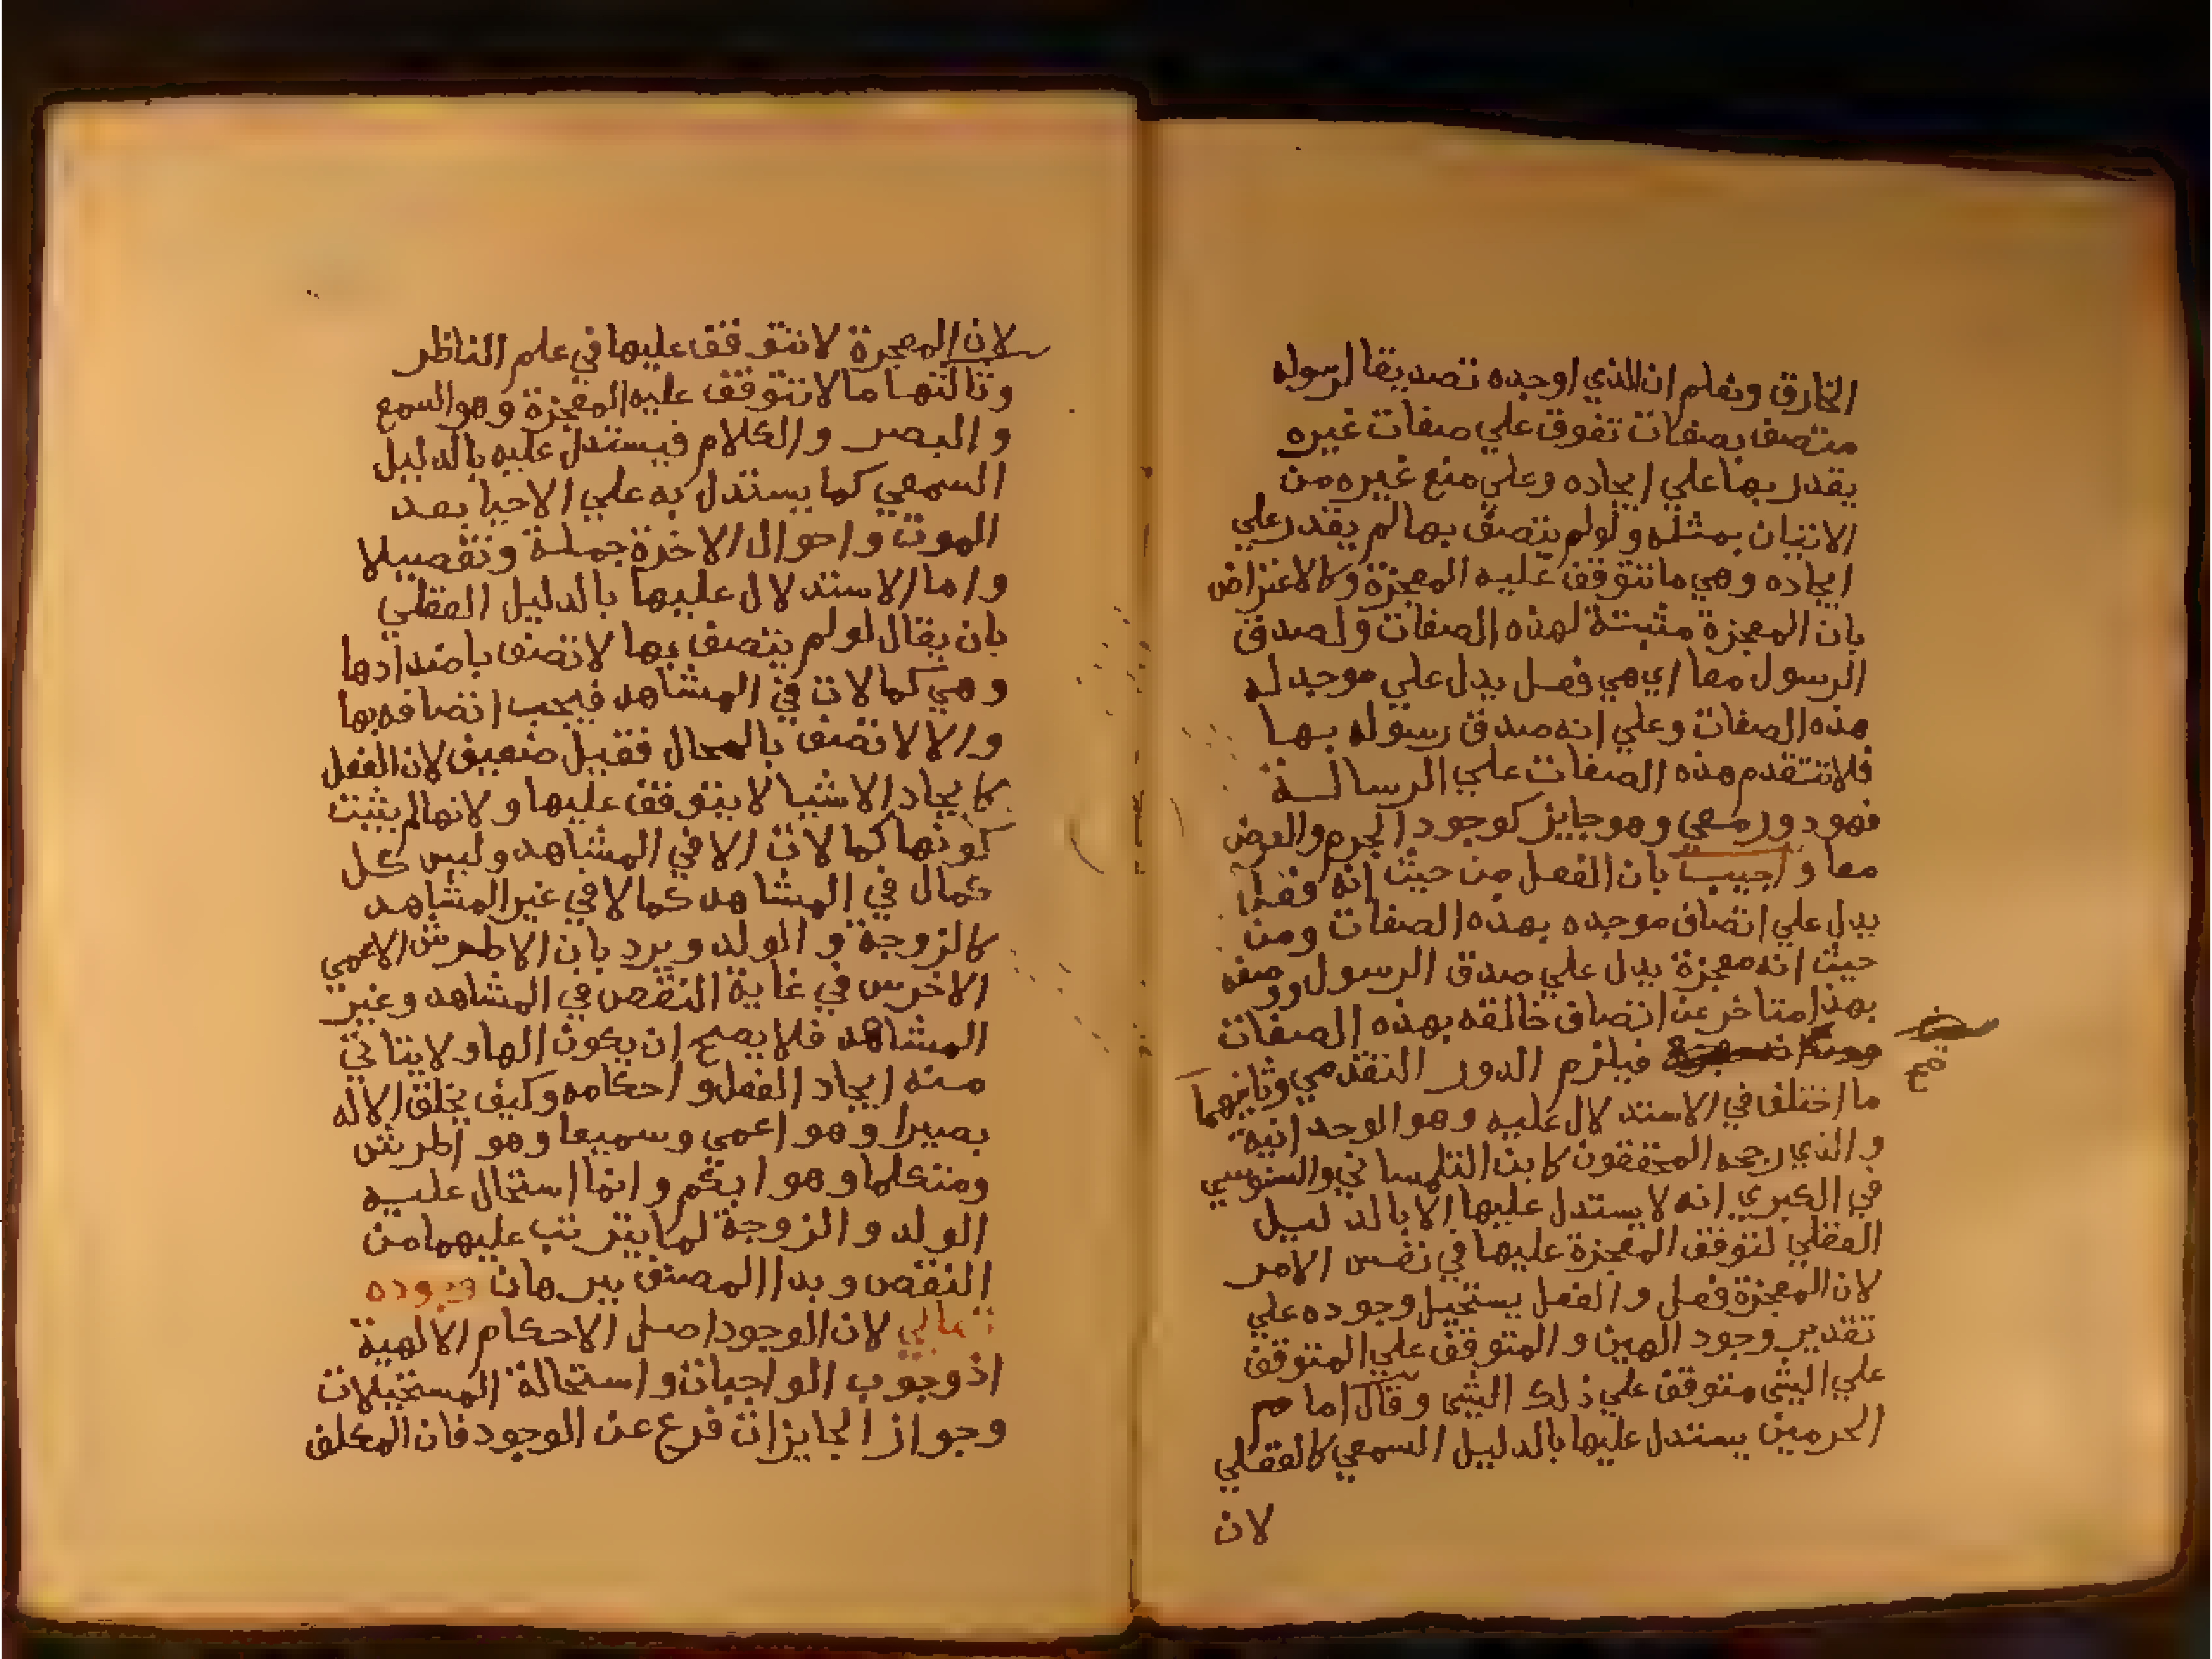 الخارق ونعلم ان الذي اوجده تصديقا لرسوله
متصف بصفات تفوق علي صفات غيره
يقدر بها علي ايجاده وعلي منع غيره من
الاتيان بمثله ولولم يتصف بها لم يقدر علي
ايجاده وهي ما تتوقف عليه المعجزة وكالاعتراض
بان المعجزة مثبتة لهذه الصفات ولصدق
الرسول معا اي هي فعل يدل علي موجد له
هذه الصفات وعلي انه صدق رسوله بها
فلا تتقدم هذه الصفات علي الرسالة
فهو دور معي وهو جايز كوجود الجرم والعرض
معا واجيب بان الفعل من حيث انه فعل
يدل علي اتصاف موجده بهذه الصفات ومن
حيث انه معجزة يدل علي صدق الرسول ووصفه
بهذا متاخر عن اتصاف خالقه بهذه الصفات
فيلزم الدور التقدمي وثانيهما
ما اختلف في الاستدلال عليه وهو الوحدانية
والذي رجحه المحققون كابن التلمساني والسنوسي
في الكبري انه لا يستدل عليها الا بالدليل
العقلي لتوقف المعجزة عليها في نفس الامر
لان المعجزة فعل والفعل يستحيل وجوده علي
تقدير وجود الهين والمتوقف علي المتوقف
علي الشي متوقف علي ذلك الشي وقال امام
الحرمين يستدل عليها بالدليل السمعي كالعقلي
لان
لان المعجزة لا تتوقف عليها في علم الناظر
وثالثها ما لا تتوقف عليه المعجزة وهو السمع
والبصر والكلام فيستدل عليه بالدليل
السمعي كما يستدل به علي الاحيا بعد
الموت واحوال الاخرة جملة وتفصيلا
واما الاستدلال عليها بالدليل العقلي
بان يقال لولم يتصف بها لاتصف باضدادها
وهي كمالات في المشاهد فيجب اتصافه بها
والا لاتصف بالمحال فقيل ضعيف لان الفعل
كايجاد الاشيا لا يتوقف عليها ولانها لم يثبت
كونها كمالات الا في المشاهد وليس كل
كمال في المشاهد كمالا في غير المشاهد
كالزوجة والولد ويرد بان الاطرش الاعمي
الاخرس في غاية النقص في المشاهد وغير
المشاهد فلا يصح ان يكون الها ولا يتاتي
منه ايجاد الفعل واحكامه وكيف يخلق الاله
بصيرا وهو اعمى وسميعا وهو اطرش
ومتكلما وهو ابكم وانما استحال عليه
الولد والزوجة لما يترتب عليهما من
النقص وبدا المصنف ببرهان وجوده
تعالي لان الوجود اصل الاحكام الالهية
اذ وجوب الواجبات واستحالة المستحيلات
وجواز الجايزات فرع عن الوجود فان المكلف